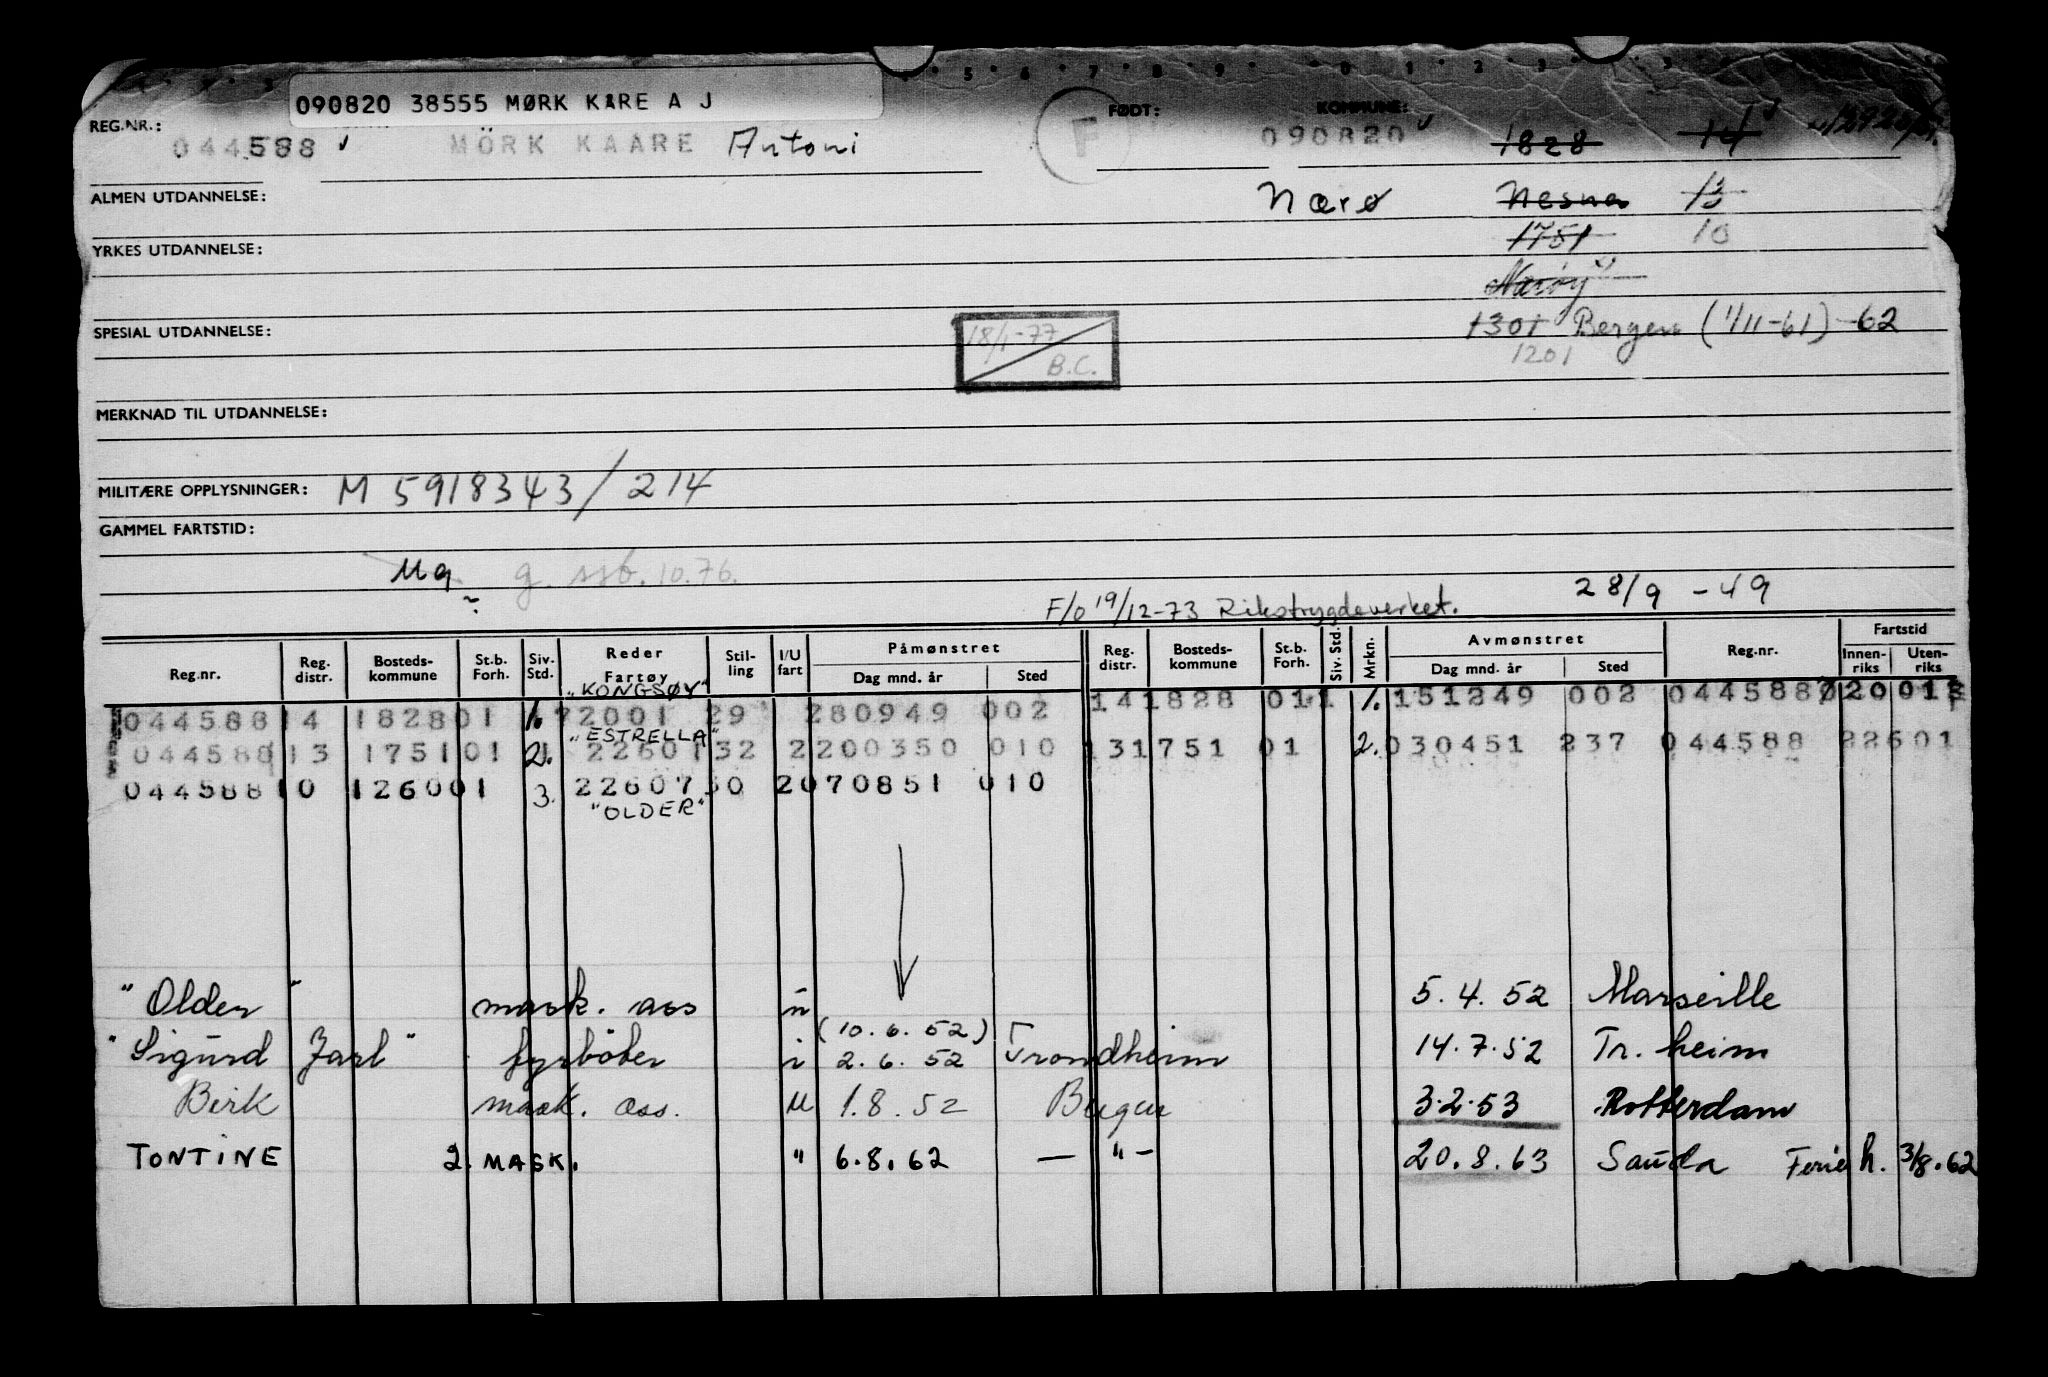 090820 38555 MØRK KÅRE A J
REG.NR.: FØDT: KOMMUNE:
044588 MÖRK KAARE Antoni F 090820 1828 14
ALMEN UTDANNELSE: Nærø Nesna 13
YRKES UTDANNELSE: 1751 10
Nærøy
SPESIAL UTDANNELSE: 18/1-77 1301 Bergen (1/11-61) -62
B.C. 1201
MERKNAD TIL UTDANNELSE:
MILITÆRE OPPLYSNINGER: M 5918343/214
GAMMEL FARTSTID:
Mq g. ssb. 10.76.
F/o 19/12-73 Rikstrygdeverket. 28/9 - 49
Reg.nr. Reg. distr. Bosteds-kommune St.b. Forh. Siv. Std. Reder Fartøy Stil-ling I/U fart Påmønstret Dag mnd. år Sted Reg. distr. Bosteds-kommune St.b. Forh. Siv. Std. Mrkn. Avmønstret Dag mnd. år Sted Reg.nr. Fartstid Innen-riks Uten-riks
"KONGSØY"
044588 14 1828 01 1. 72001 29 280949 002 14 1828 01 1 1. 151249 002 044588
"ESTRELLA"
044588 13 1751 01 2. 22601 32 2 200350 010 13 1751 01 2. 030451 237 044588 22601
044588 10 1260 01 3. 22607 30 2 070851 010
"OLDER"
"Older" mask. ass u 5.4.52 Marseille
(10.6.52)
"Sigurd Jarl" fyrböter i 2.6.52 Trondheim 14.7.52 Tr.heim
Birk mask. ass. u 1.8.52 Bergen 3.2.53 Rotterdam
TONTINE 2. MASK. " 6.8.62 — " — 20.8.63 Sauda Ferie h. 3/8.62